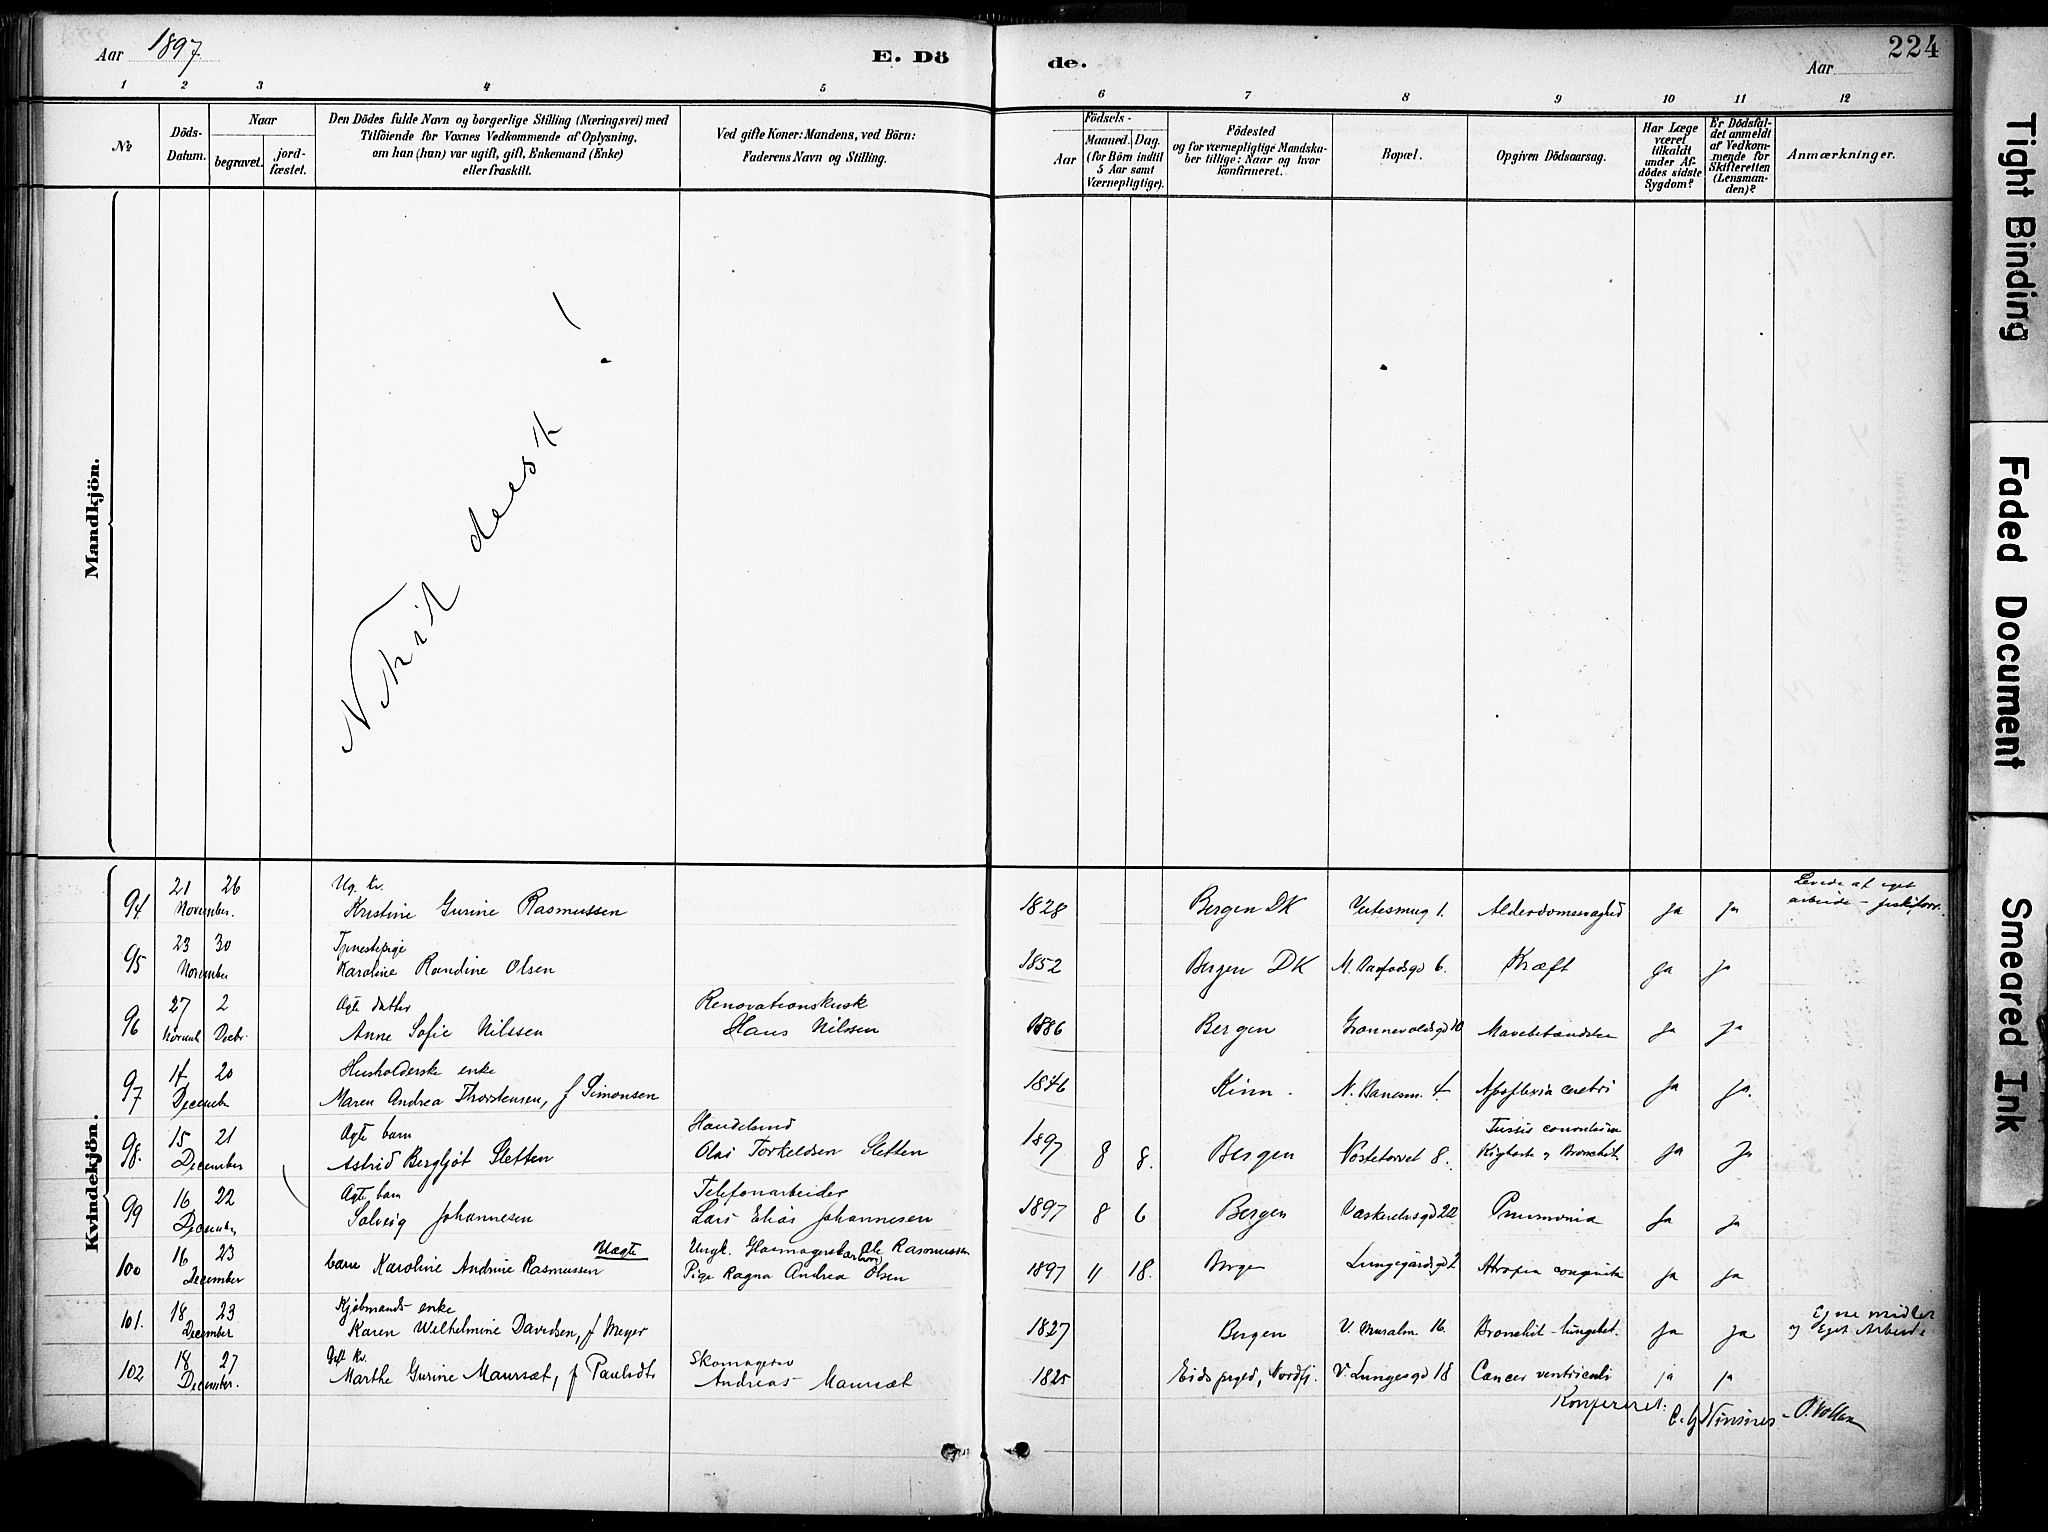 Aar 1897.
E. Dö
de.
Aar
224
1 2 3 4 5 6 7 8 9 10 11 12
№
Döds-
Datum.
Naar
begravet.
jord-
fæstet.
Den Dödes fulde Navn og borgerlige Stilling (Næringsvei) med
Tilföiende for Voxnes Vedkommende af Oplysning,
om han (hun) var ugift, gift, Enkemand (Enke)
eller fraskilt.
Ved gifte Koner: Mandens, ved Börn:
Faderens Navn og Stilling.
Födsels-
Aar
Maaned. Dag.
(for Börn indtil
5 Aar samt
Værnepligtige).
Födested
og for værnepligtige Mandska-
ber tillige: Naar og hvor
konfirmeret.
Bopæl.
Opgiven Dödsaarsag.
Har Læge
været
tilkaldt
under Af-
dödes sidste
Sygdom?
Er Dödsfal-
det anmeldt
af Vedkom-
mende for
Skifteretten
(Lensman-
den)?
Anmærkninger.
Mandkjön.
Nihil deest!
Kvindekjön.
21 26 Ug. Kv. Levede af eget
94 November. Kristine Gurine Rasmussen 1828 Bergen DK 1. Ja ja arbeide
23 30 Tjenestepige
95 November Karoline Randine Olsen 1852 Bergen DK 6. Kræft Ja ja
27 2 Ægte datter Renovationskusk
96 Novemb Decbr. Anne Sofie Nilssen Hans Nilssen 1886 Bergen Grønnevoldsgd 10 Mavebetændelse Ja ja
14 20 Husholderske enke
97 Decemb Maren Andrea Thorstensen, f Simonsen 1846 Kinn. 4 Apoplexia cerebri Ja ja.
15 21 Ægte barn Handelsmd Tussis convulsiva
98. December Astrid Bergljot Sletten Olai Torkeldsen Sletten 1897 8 8. Bergen Nøstetorvet 8. Kighoste og Bronchit Ja ja
16 22 Ægte barn Telefonarbeider
99 December Solveig Johannesen Lars Elias Johannesen 1897 8 6 Bergen 22 Pneumonia Ja ja
16 23 Uægte Ungk. Ole Rasmussen
100 December barn Karoline Andrine Rasmussen Pige Ragna Andrea Olsen 1897 11 18. Bergen Lungegårdsgd 2 Atrofia congenita Ja ja
18 23 Kjøbmands enke Egne midler
101. December Karen Wilhelmine Davidsen, f Meyer 1827 Bergen V. Muralm. 16. Bronchit - lungebet. Ja ja og Eget Arbeide
18 27 Gift Kv. Skomager
102 December. Marthe Gurine Maursæt, f Paulsdtr Andreas Maursæt 1825 Eids prgjd, Nordfj. V. Lungegd 18 Cancer ventriculi ja ja
Konfereret:
Tight Binding
Faded Document
Smeared Ink